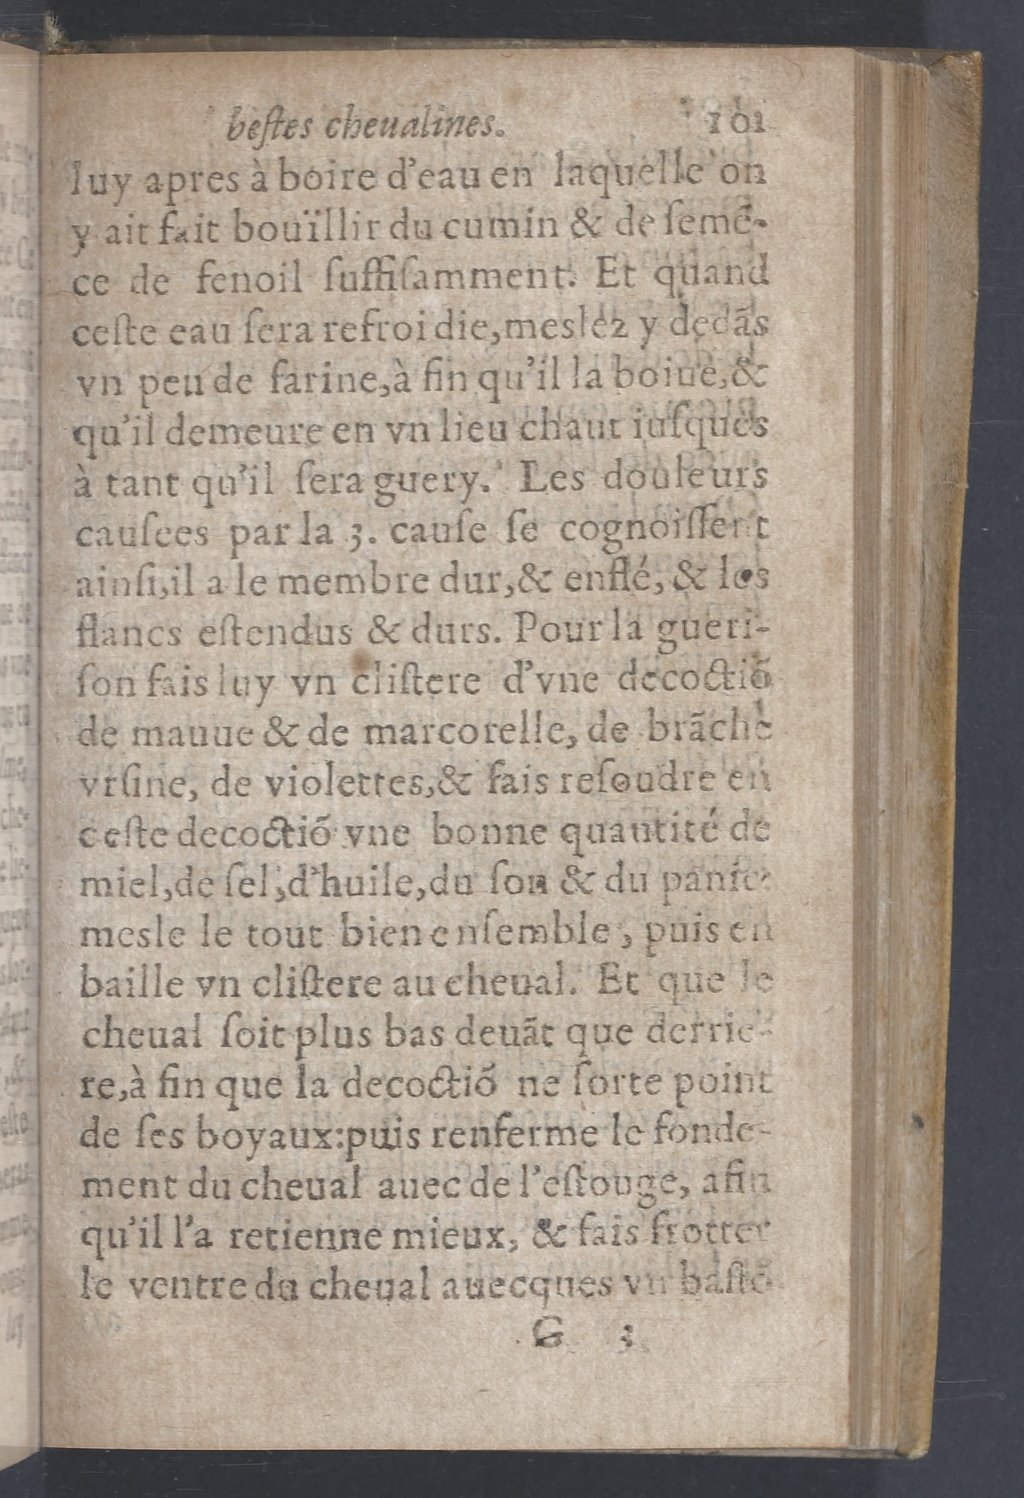 beſtes cheualines. 101
luy apres à boire d'eau en laquelle on
y ait fait bouïllir du cumin & de ſemē-
ce de fenoil ſuffiſamment. Et quand
ceſte eau ſera refroidie, mesléz y dedãs
vn peu de farine, à fin qu'il la boiue, &
qu'il demeure en vn lieu chaut iuſques
à tant qu'il ſera guery. Les douleurs
cauſees par la 3. cauſe ſe cognoiſſent
ainſi, il a le membre dur, & enflé, & les
flancs eſtendus & durs. Pour la gueri-
ſon fais luy vn cliſtere d'vne decoctiō
de mauue & de marcorelle, de brãche
vrſine, de violettes, & fais reſoudre en
ceſte decoctiō vne bonne quantité de
miel, de ſel, d'huile, du ſon & du panic:
mesle le tout bien enſemble, puis en
baille vn cliſtere au cheual. Et que le
cheual ſoit plus bas deuãt que derrie-
re, à fin que la decoctiō ne ſorte point
de ſes boyaux: puis renferme le fonde-
ment du cheual auec de l'eſtouge, afin
qu'il l'a retienne mieux, & fais frotter
le ventre du cheual auecques vn baſtō
G 3